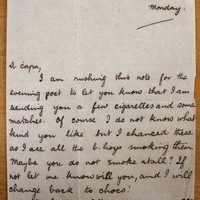 Monday.
I am rushing this note for the
evening post to let you know that I am
sending you a few cigarettes and some
matches. Of course I do not know what
kind you like but I chanced these
as I see all the b. hoys smoking them.
Maybe you do not smoke atall? If
not let me know will you, and I will
change back to choco!